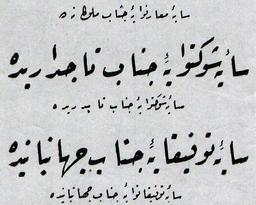 سایۀ معارفوایۀ جناب ملوکانه
سایۀ شوکتوایۀ جناب تاجداریده
سایۀ شوکتوایۀ جناب
سایۀ توفیقایۀ جناب جهانبانیده
سایۀ توفیقاتوایۀ جناب جهانبانیده